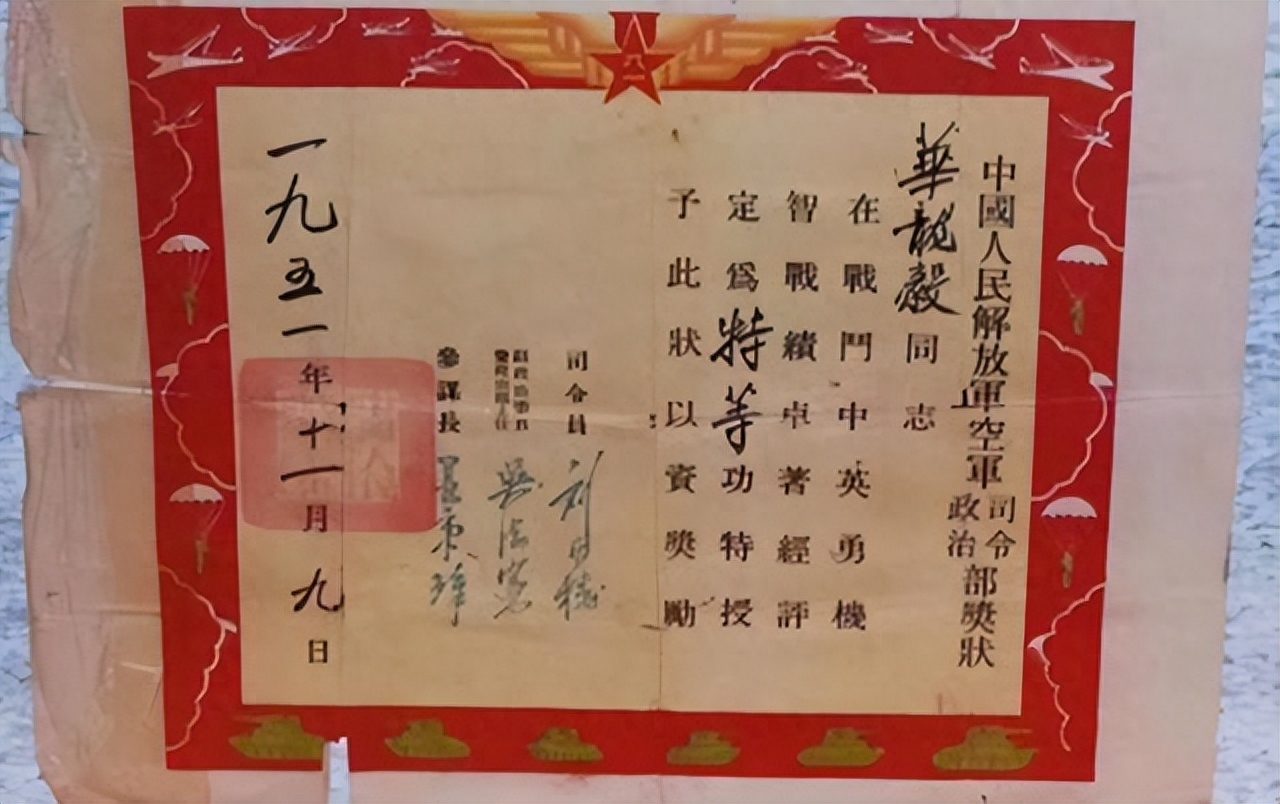 八一
中國人民解放軍空軍司令政治部獎狀
華龍毅同志
在戰鬥中英勇機
智戰績卓著經評
定爲特等功特授
予此狀以資獎勵
司令員
吳法憲
參謀長
一九五一年十一月九日